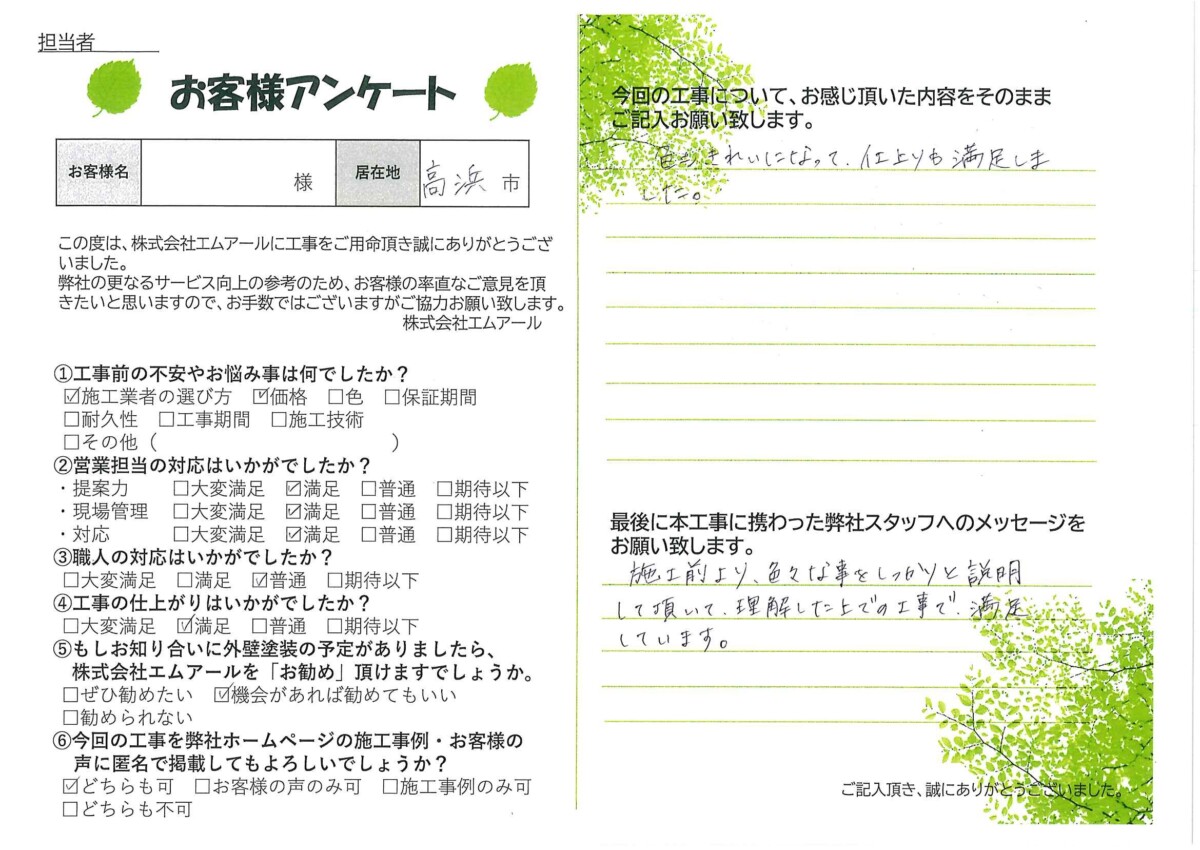 担当者
お客様アンケート
お客様名 様 居在地 高浜 市
この度は、株式会社エムアールに工事をご用命頂き誠にありがとうござ
いました。
弊社の更なるサービス向上の参考のため、お客様の率直なご意見を頂
きたいと思いますので、お手数ではございますがご協力お願い致します。
株式会社エムアール
①工事前の不安やお悩み事は何でしたか？
☑施工業者の選び方 ☑価格 □色 □保証期間
□耐久性 □工事期間 □施工技術
□その他（ ）
②営業担当の対応はいかがでしたか？
・提案力 □大変満足 ☑満足 □普通 □期待以下
・現場管理 □大変満足 ☑満足 □普通 □期待以下
・対応 □大変満足 ☑満足 □普通 □期待以下
③職人の対応はいかがでしたか？
□大変満足 □満足 ☑普通 □期待以下
④工事の仕上がりはいかがでしたか？
□大変満足 ☑満足 □普通 □期待以下
⑤もしお知り合いに外壁塗装の予定がありましたら、
株式会社エムアールを「お勧め」頂けますでしょうか。
□ぜひ勧めたい ☑機会があれば勧めてもいい
□勧められない
⑥今回の工事を弊社ホームページの施工事例・お客様の
声に匿名で掲載してもよろしいでしょうか？
☑どちらも可 □お客様の声のみ可 □施工事例のみ可
□どちらも不可
今回の工事について、お感じ頂いた内容をそのまま
ご記入お願い致します。
色もきれいになって、仕上りも満足しま
した。
最後に本工事に携わった弊社スタッフへのメッセージを
お願い致します。
施工前より、色々な事をしっかりと説明
して頂いて、理解した上での工事で、満足
しています。
ご記入頂き、誠にありがとうございました。